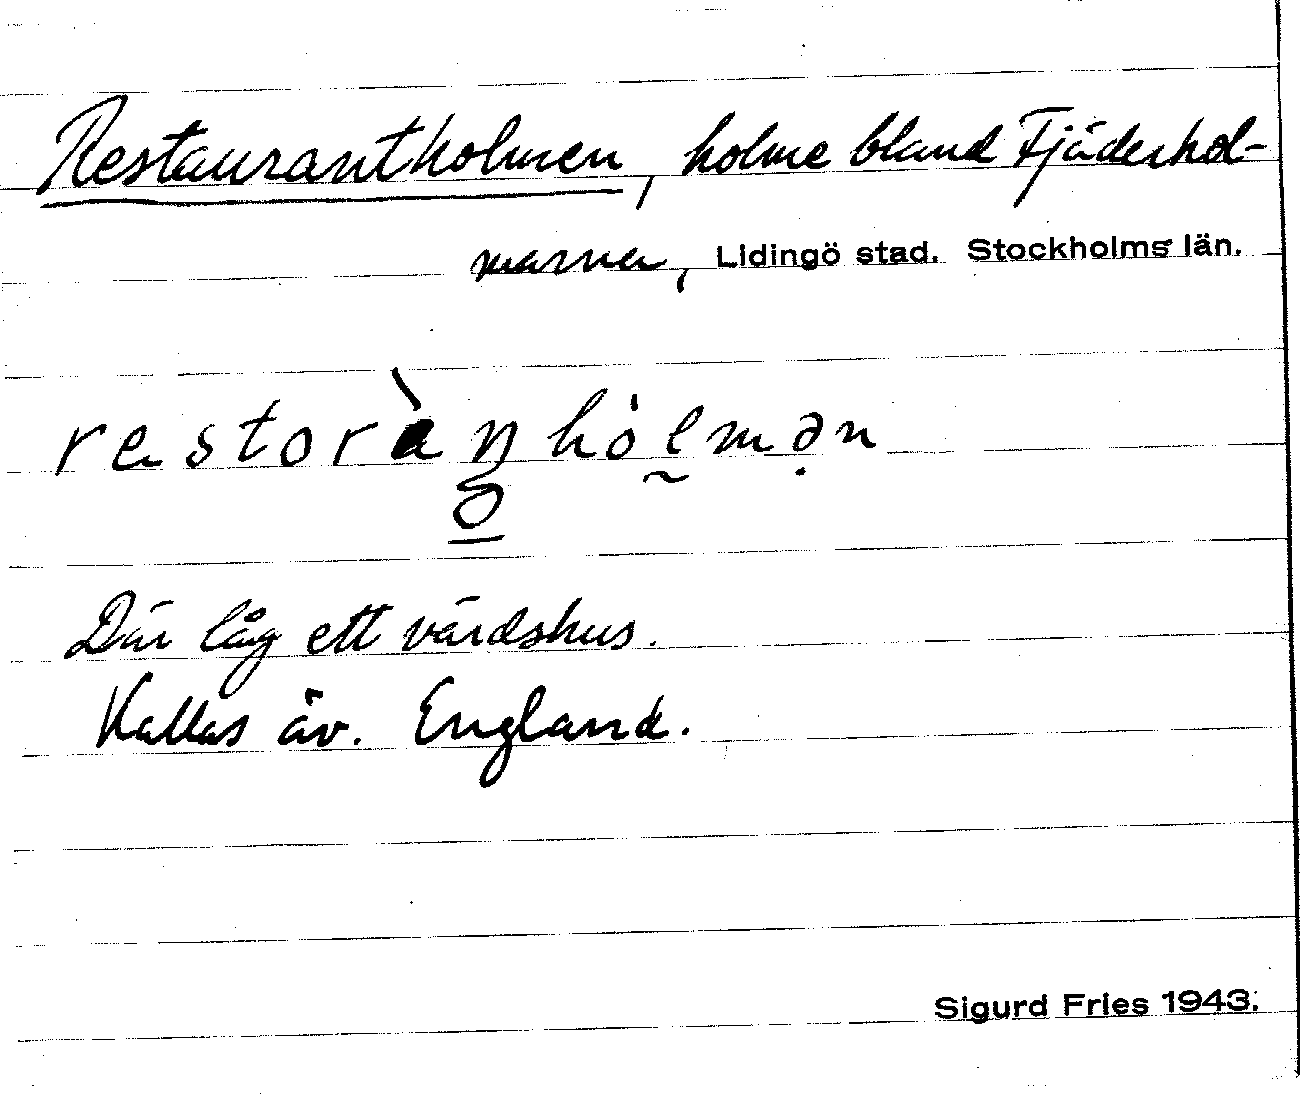 Restaurantholmen, holme bland Fjäderhol-
marna, Lidingö stad. Stockholms län.
restoràŋhòlmən
Där låg ett värdshus.
Kallas äv. England.
Sigurd Fries 1943.